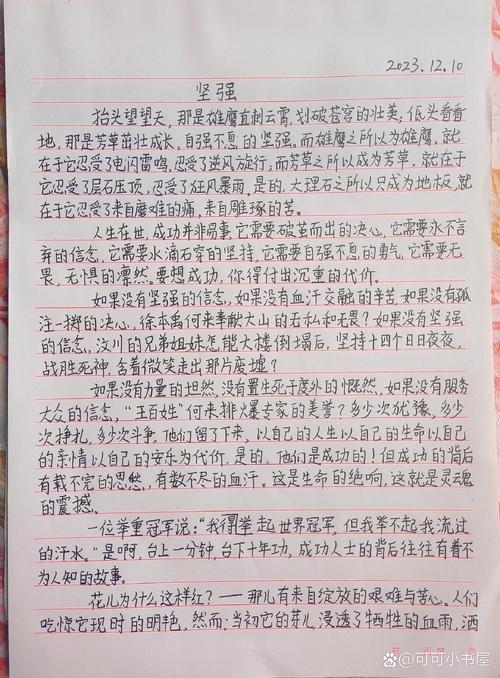 2023.12.10
坚强
抬头望望天,那是雄鹰直刺云霄,划破苍穹的壮美;低头看看
地,那是芳草茁壮成长,自强不息的坚强。而雄鹰之所以为雄鹰,就
在于它忍受了电闪雷鸣,忍受了逆风旋行,而芳草之所以成为芳草,就在于
它忍受了层石压顶,忍受了狂风暴雨,是的,大理石之所以只成为地板,就
在于它忍受了来自磨难的痛,来自雕琢的苦。
人生在世,成功并非易事,它需要破茧而出的决心,它需要永不言
弃的信念,它需要水滴石穿的坚持,它需要自强不息的勇气,它需要无
畏,无惧的凛然。要想成功,你得付出沉重的代价。
如果没有坚强的信念,如果没有血汗交融的辛苦,如果没有孤
注一掷的决心,徐本禹何来奉献大山的无私和无畏?如果没有坚强
的信念,汶川的兄弟姐妹怎能大楼倒塌后,坚持十四个日日夜夜,
战胜死神,含着微笑走出那片废墟?
如果没有力量的坦然,没有置生死于度外的慨然,如果没有服务
大众的信念,"王百姓"何来排爆专家的美誉?多少次犹豫,多少
次挣扎,多少次斗争,他们留了下来,以自己的人生以自己的生命以自己
的亲情以自己的安乐为代价,是的,他们是成功的!但成功的背后
有载不完的思愁,有数不尽的血汗。这是生命的绝响,这就是灵魂
的震撼。
一位举重冠军说:"我得举起世界冠军,但我举不起我流过
的汗水。"是啊,台上一分钟,台下十年功,成功人士的背后往往有着不
为人知的故事。
花儿为什么这样红?——那儿有来自绽放的艰难与苦心。人们
吃惊它现时的明艳,然而:当初它的芽儿,浸透了牺牲的血雨,洒
共 页第 页
@可可小书屋